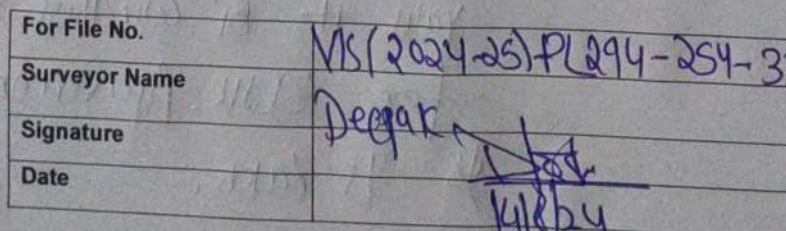 For File No. VIS(2024-25)PL294-254-3
Surveyor Name Deepak
Signature
Date 14/8/24